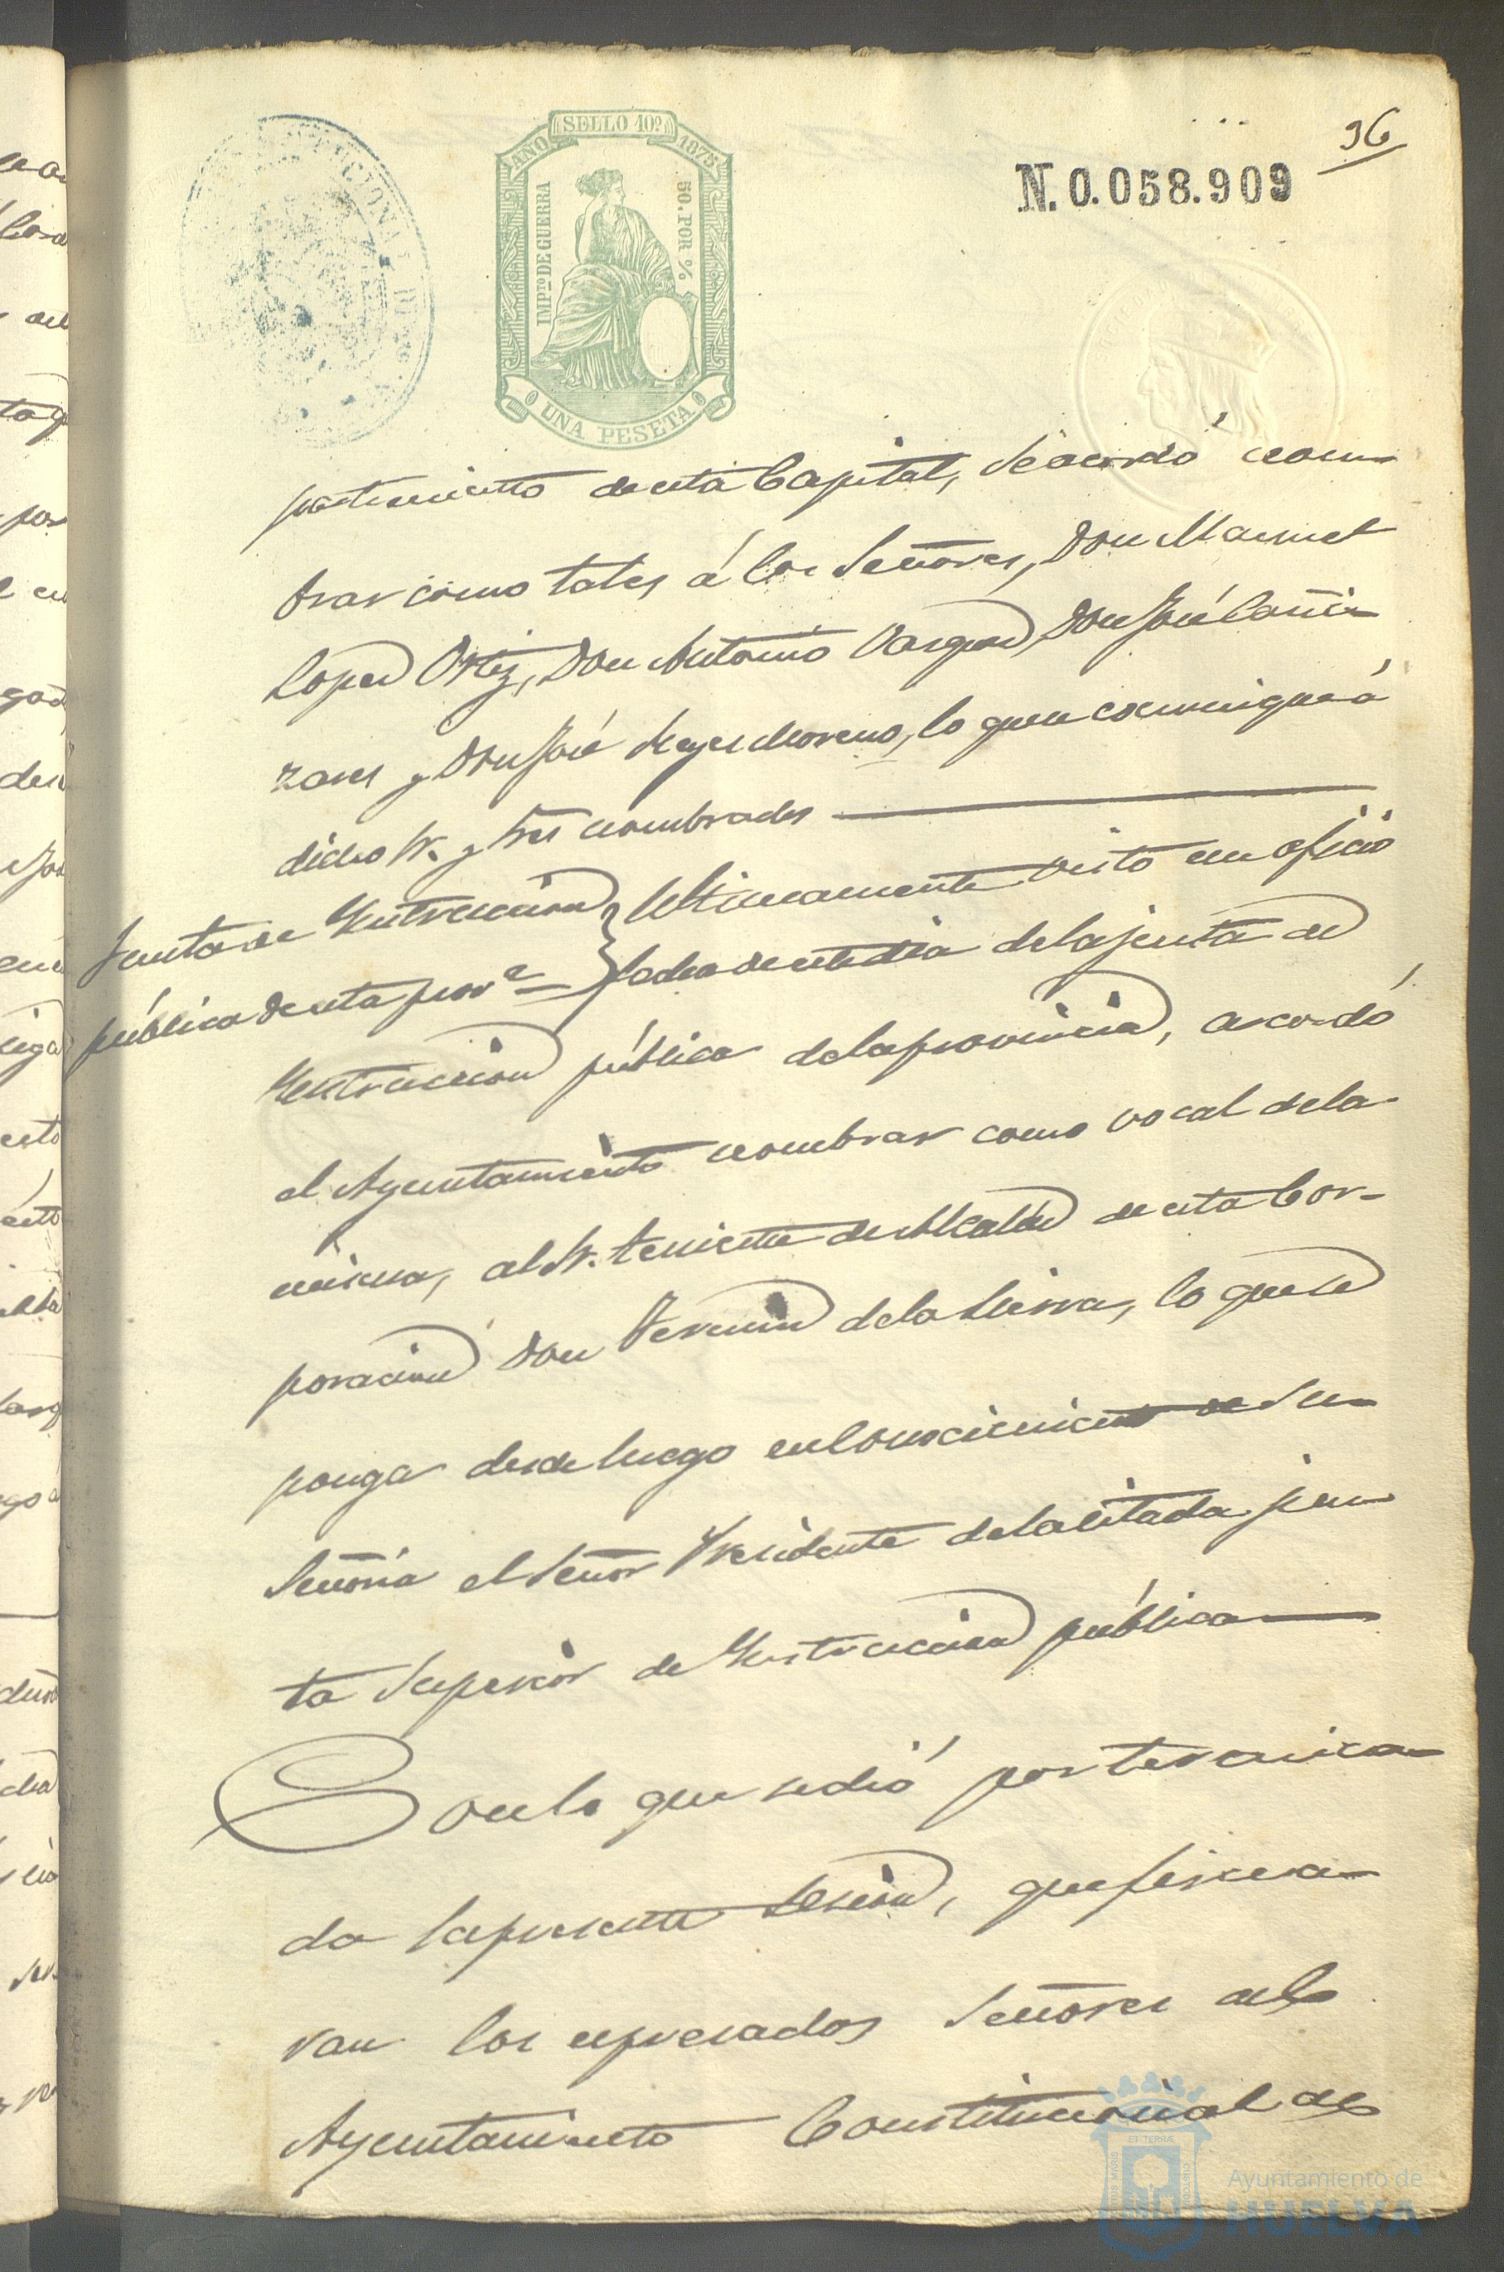 96
N. 0.058.909
AÑO SELLO 10º 1875
IMPTO DE GUERRA
50. POR %
UNA PESETA
partimiento de esta Capital, Se acordó nom-
brar como tales á los Señores, Don Manuel
Lopez Ortiz, Don Antonio Vargas, Don José Cañi-
zares y Don José Reyes Moreno, lo que se comunique á
dicho Sr. y tres nombrados
Junta de Yntruccion
pública de esta prov.ª
Ultimamente visto un oficio
fecha de este dia de la junta de
Yntruccion pública de la provincia, acordó
el Ayuntamiento nombrar como vocal de la
misma, al Sr. teniente de Alcalde de esta Cor-
poracion Don Fermin de la Sierra, lo que se
ponga desde luego en Conocimiento de Su
Señoria el Señor Presidente de la citada jun
ta Superior de Ynstruccion pública
Con lo que se dió por termina-
da la presente Sesion, que firma-
ran los espresados Señores del
Ayuntamiento Constitucional de
Ayuntamiento de
HUELVA